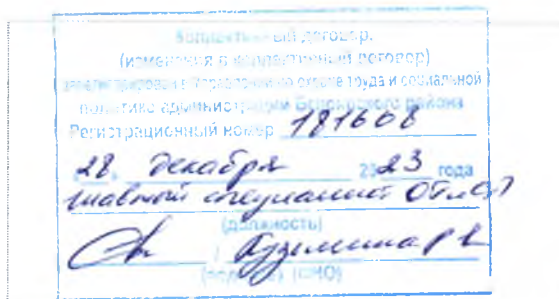 Коллективный договор.
(изменения в коллективный договор)
зарегистрирован в Управлении по охране труда и социальной
политике администрации района
Регистрационный номер 181608
28 декабря 2023 года
главный специалист
(должность)
(подпись) (ФИО)